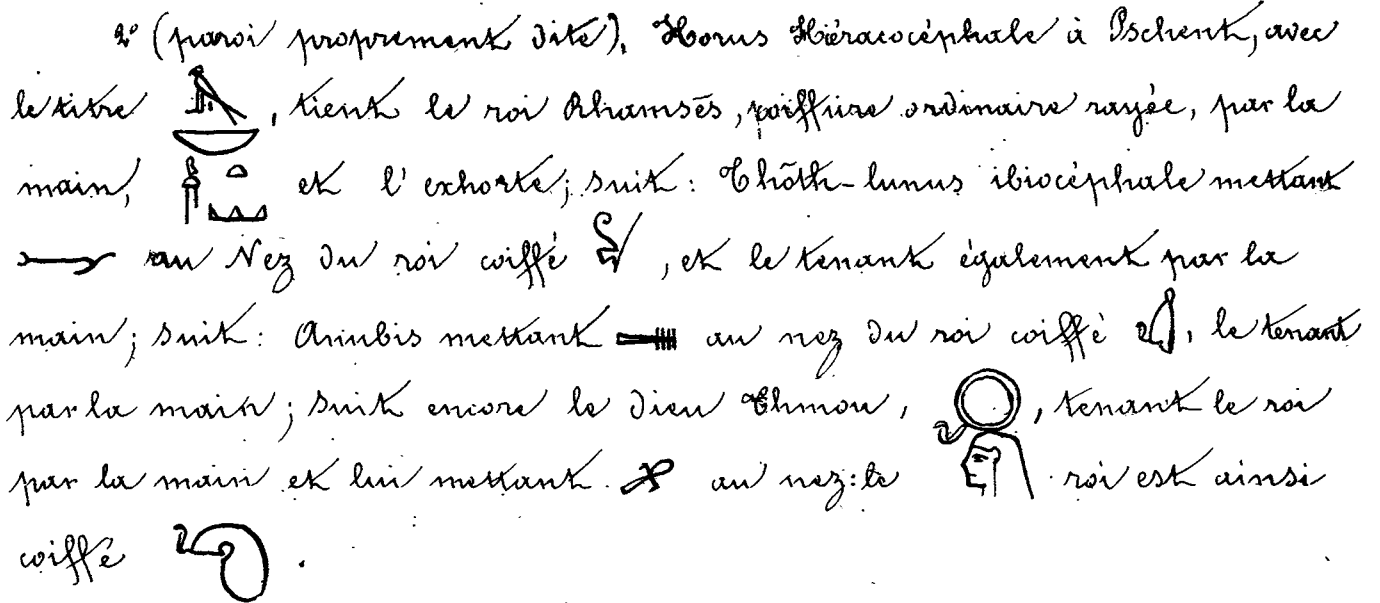 2° (paroi proprement dite), Horus Hiéracocéphale à Pschent, avec
le titre , tient le roi Rhamsès, coiffure ordinaire rayée, par la
main, et l'exhorte; suit: Thôth-lunus ibiocéphale mettant
au Nez du roi coiffé , et le tenant également par la
main; suit: Anubis mettant au nez du roi coiffé , le tenant
par la main; suit encore le dieu Thmou, , tenant le roi
par la main et lui mettant au nez: le roi est ainsi
coiffé .